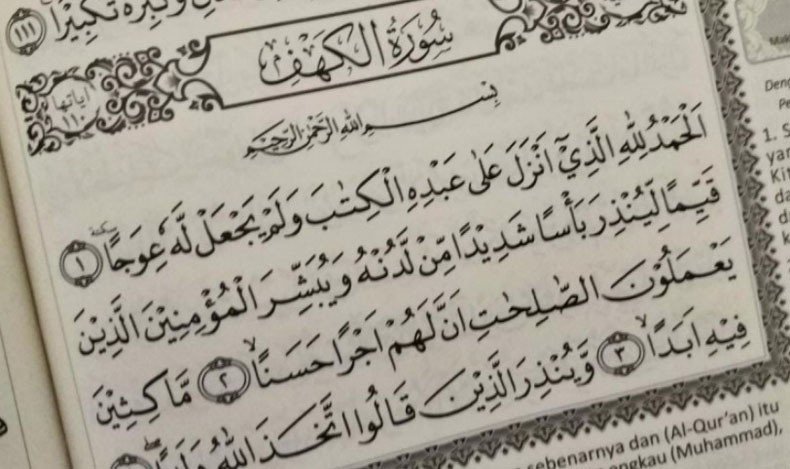 وَكَبِّرْهُ تَكْبِيْرًا ١١١
سُوْرَةُ الْكَهْفِ
اٰيَاتُهَا ١١٠
بِسْمِ اللّٰهِ الرَّحْمٰنِ الرَّحِيْمِ
اَلْحَمْدُ لِلّٰهِ الَّذِيْٓ اَنْزَلَ عَلٰى عَبْدِهِ الْكِتٰبَ وَلَمْ يَجْعَلْ لَّهٗ عِوَجًا ۜ ١
قَيِّمًا لِّيُنْذِرَ بَأْسًا شَدِيْدًا مِّنْ لَّدُنْهُ وَيُبَشِّرَ الْمُؤْمِنِيْنَ الَّذِيْنَ
يَعْمَلُوْنَ الصّٰلِحٰتِ اَنَّ لَهُمْ اَجْرًا حَسَنًاۙ ٢ مَّاكِثِيْنَ
فِيْهِ اَبَدًاۙ ٣ وَّيُنْذِرَ الَّذِيْنَ قَالُوا اتَّخَذَ اللّٰهُ وَلَدًا
Deng
Pe
1. S
yan
Kit
da
d
sebenarnya dan (Al-Qur'an) itu
engkau (Muhammad),